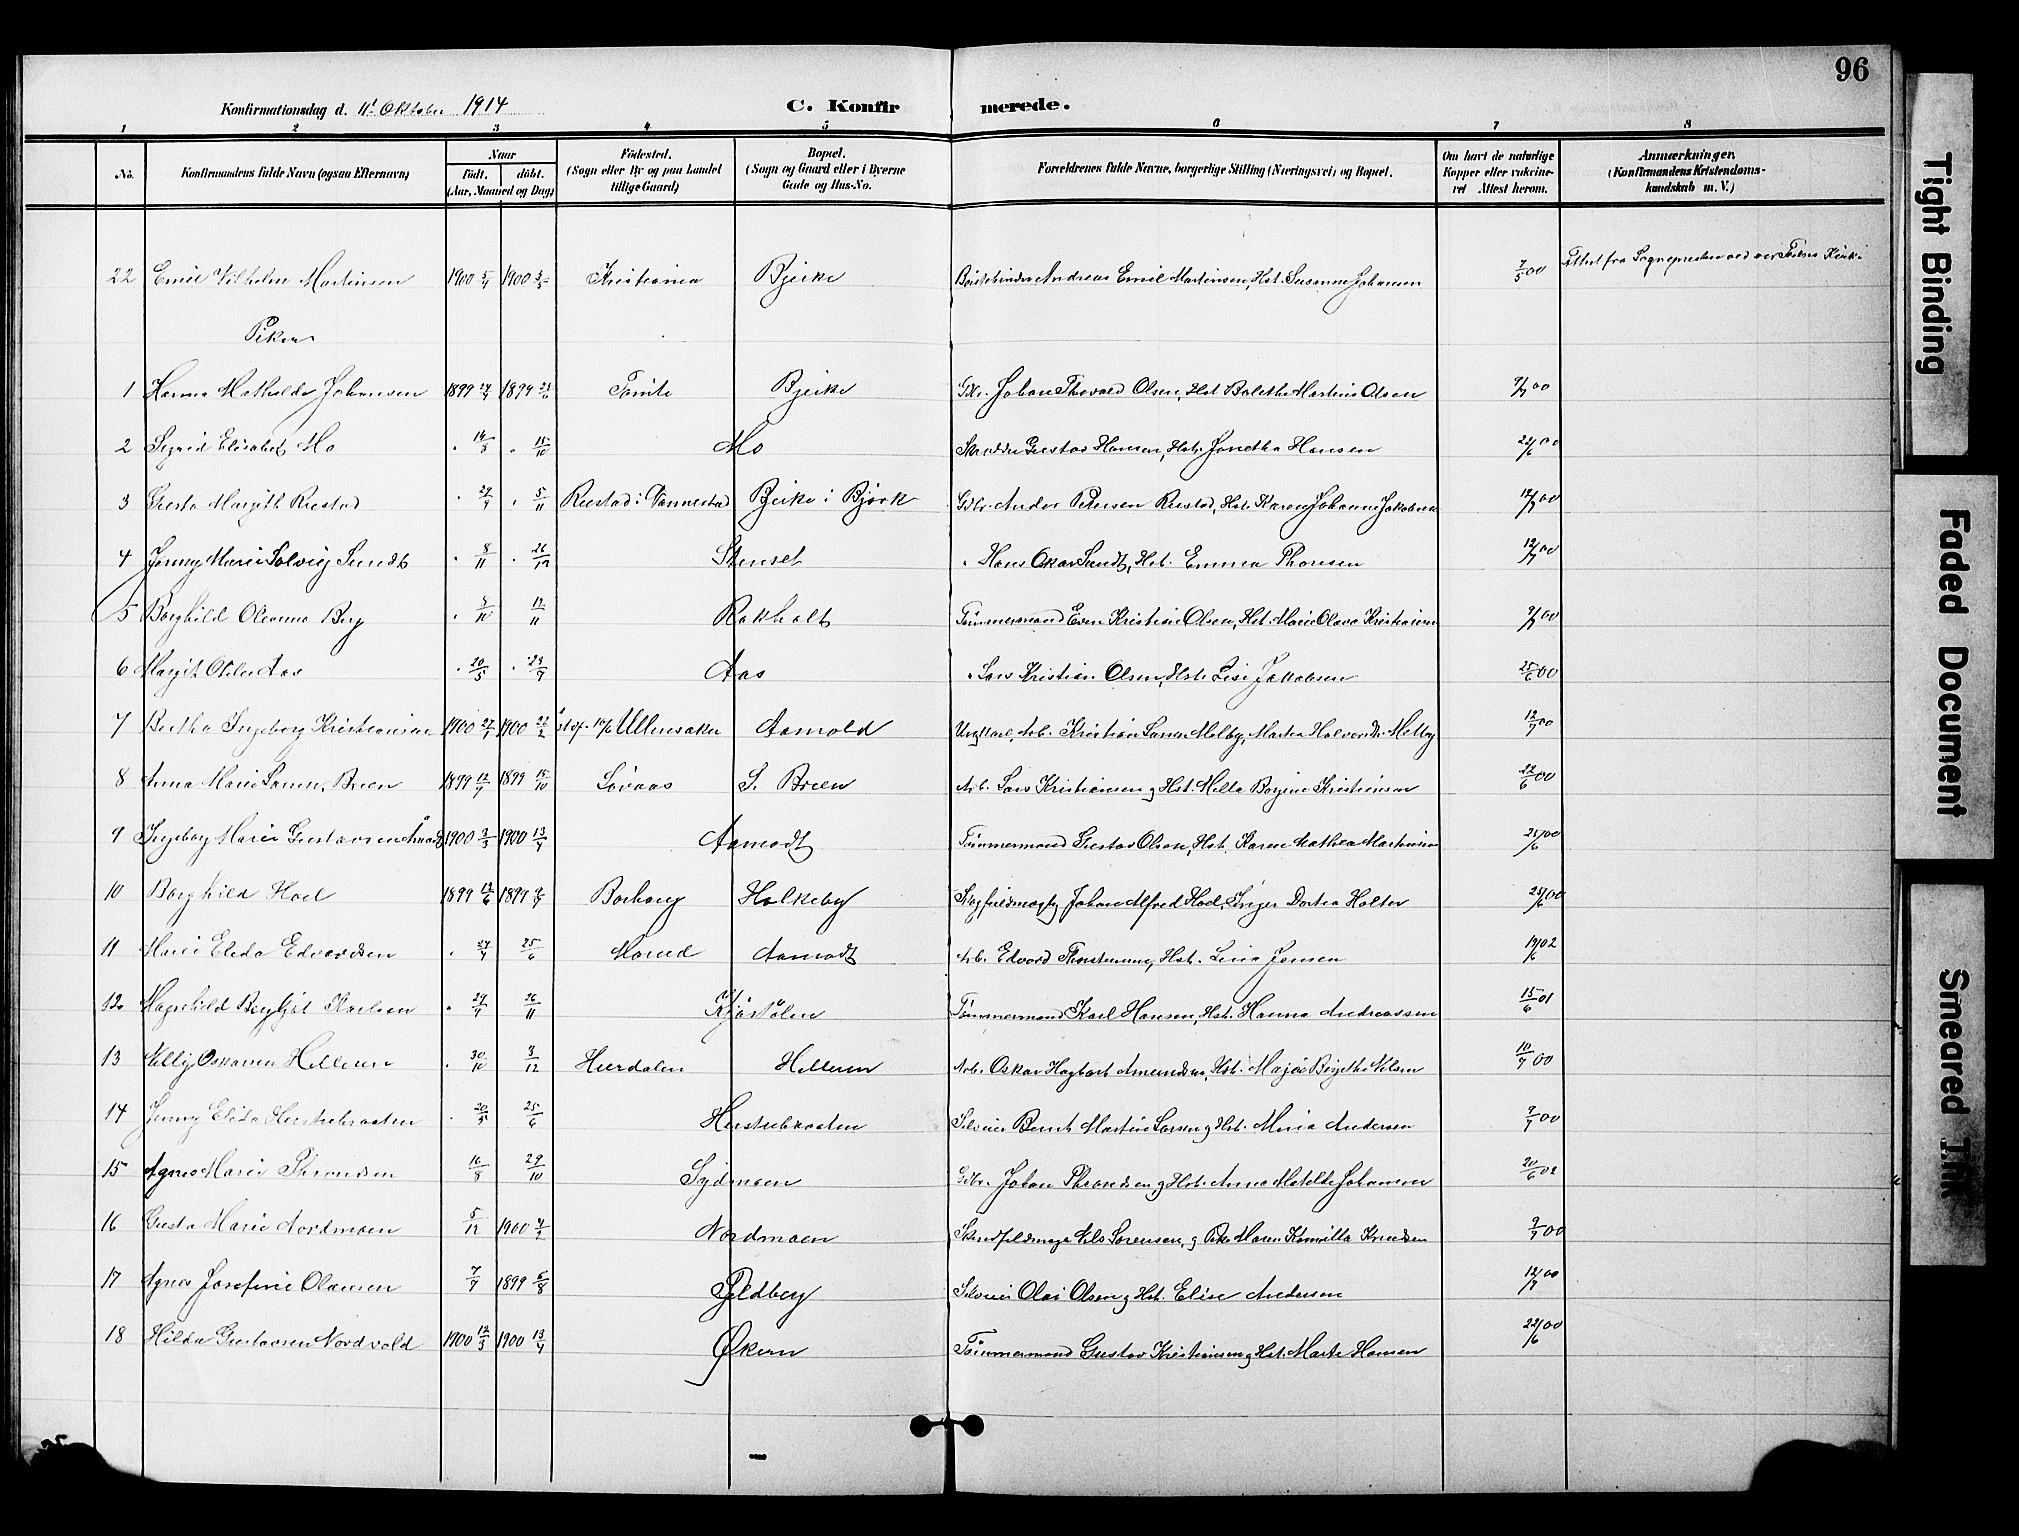 96
Konfirmationsdag d. 11' Oktober 1914
C. Konfirmerede.
1 2 3 4 5 6 7 8
No.
Konfirmandens fulde Navn (ogsaa Efternavn)
Naar
födt. döbt.
(Aar, Maaned og Dag)
Födested.
(Sogn eller By og paa Landet
tillige Gaard)
Bopæl.
(Sogn og Gaard eller i Byerne
Gade og Hus-No.
Forældrenes fulde Navne, borgerlige Stilling (Næringsvei) og Bopæl.
Om havt de naturlige
Kopper eller vakcine-
ret Attest herom.
Anmærkninger.
(Konfirmandens Kristendoms-
kundskab m. V.)
22 Emil Vilhelm Martinsen 1900 5/4 1900 Kristiania Bjerke Børstebinder Andreas Emil Martinsen, Hst. Susanne Johansen 7/5 00 Attest fra Sognepresten
Piker
1 Hanna Mathilde Johansen 1899 1899 Tomte Bjerke Gbr. Johan Thovald Olsen, Hst. Bolette Martine Olsen 9/7 00
2 Sigrid Elisabet Mo 15/10 Mo Skrædder Gustav Hansen, Hst. Jonetha Hansen 22/6 00
3 Gusta Margith Rustad 5/11 Rustad i Nannestad Bjerke i Bjørk Gbr. Anders Petersen Rustad, Hst. Karen Johanne Jakobsen 12/7 00
4 Jenny Marie Solveig Sundt 8/11 26/12 Stenset " Hans Oskar Sundt, Hst. Emma Thoresen 12/7 00
5 Borghild Oleanna Berg 12/11 Rokholt Tømmermand Even Kristian Olsen, Hst. Marie Olava Kristiansen 9/7 00
6 Margit Otilie Aas 20/5 Aas " Lars Kristian Olsen, Hst. Lisi Jakobsen 25/6 00
7 Bertha Ingeborg Kristiansen 1900 27/1 1900 22/2 Ullensaker Aamold Ungkarl, Arb. Kristian Larsen Melby, Martea Halvorsdr. Melby 12/7 00
8 Anna Marie Larsen Breen 1899 12/7 1899 15/10 Løvaas S. Breen Arb. Lars Kristiansen og Hst. Milla Bergine Kristiansen 22/6 00
9 Ingeborg Marie Gustavsen Åmodt 1900 3/3 1900 13/4 Aamodt Tømmermand Gustav Olsen, Hst. Karen Mathea Martinsen 25/6 00
10 Borghild Hoel 1899 12/6 1899 Borhaug Holkeby Johan Alfred Hoel, Inger Dortea Holter 25/6 00
11 Marie Elida Edvardsen 25/6 Maned Aamodt Arb. Edvard Thorstensen, Hst. Lina Jonsen 19/6 02
12 Magnhild Bergljot Karlsen 26/11 Kjøstølen Tømmermand Karl Hansen, Hst. Hanna Andreassen 15/6 01
13 Nelly Oskarea Helleren 30/10 3/12 Hurdalen Helleren Arb. Oskar Hagbart Amundsen, Hst. Maja Birgethe Nilsen 10/7 00
14 Jenny Elida Herstubraaten 20/5 25/6 Herstubraaten Selveier Bernt Martin Larsen og Hst. Maria Andersen 9/7 00
15 Agnes Marie Throndsen 16/8 29/10 Sydmoen Gbr. Johan Throndsen og Hst. Anna Matilde Johansen 20/6 02
16 Gusta Marie Nordmoen 5/12 1900 Nordmoen Nils Sørensen og Pike Maren Kamilla Knudsen 9/7 00
17 Agnes Josefine Olausen 7/7 1899 6/8 Feldberg Selveier Olai Olsen og Hst. Elise Andersen 12/7 00
18 Hilda Gustavsen Nordvold 1900 12/3 1900 13/4 Økern Tømmermand Gustav Kristiansen og Hst. Marte Hansen 22/6 00
Tight Binding
Faded Document
Smeared Ink